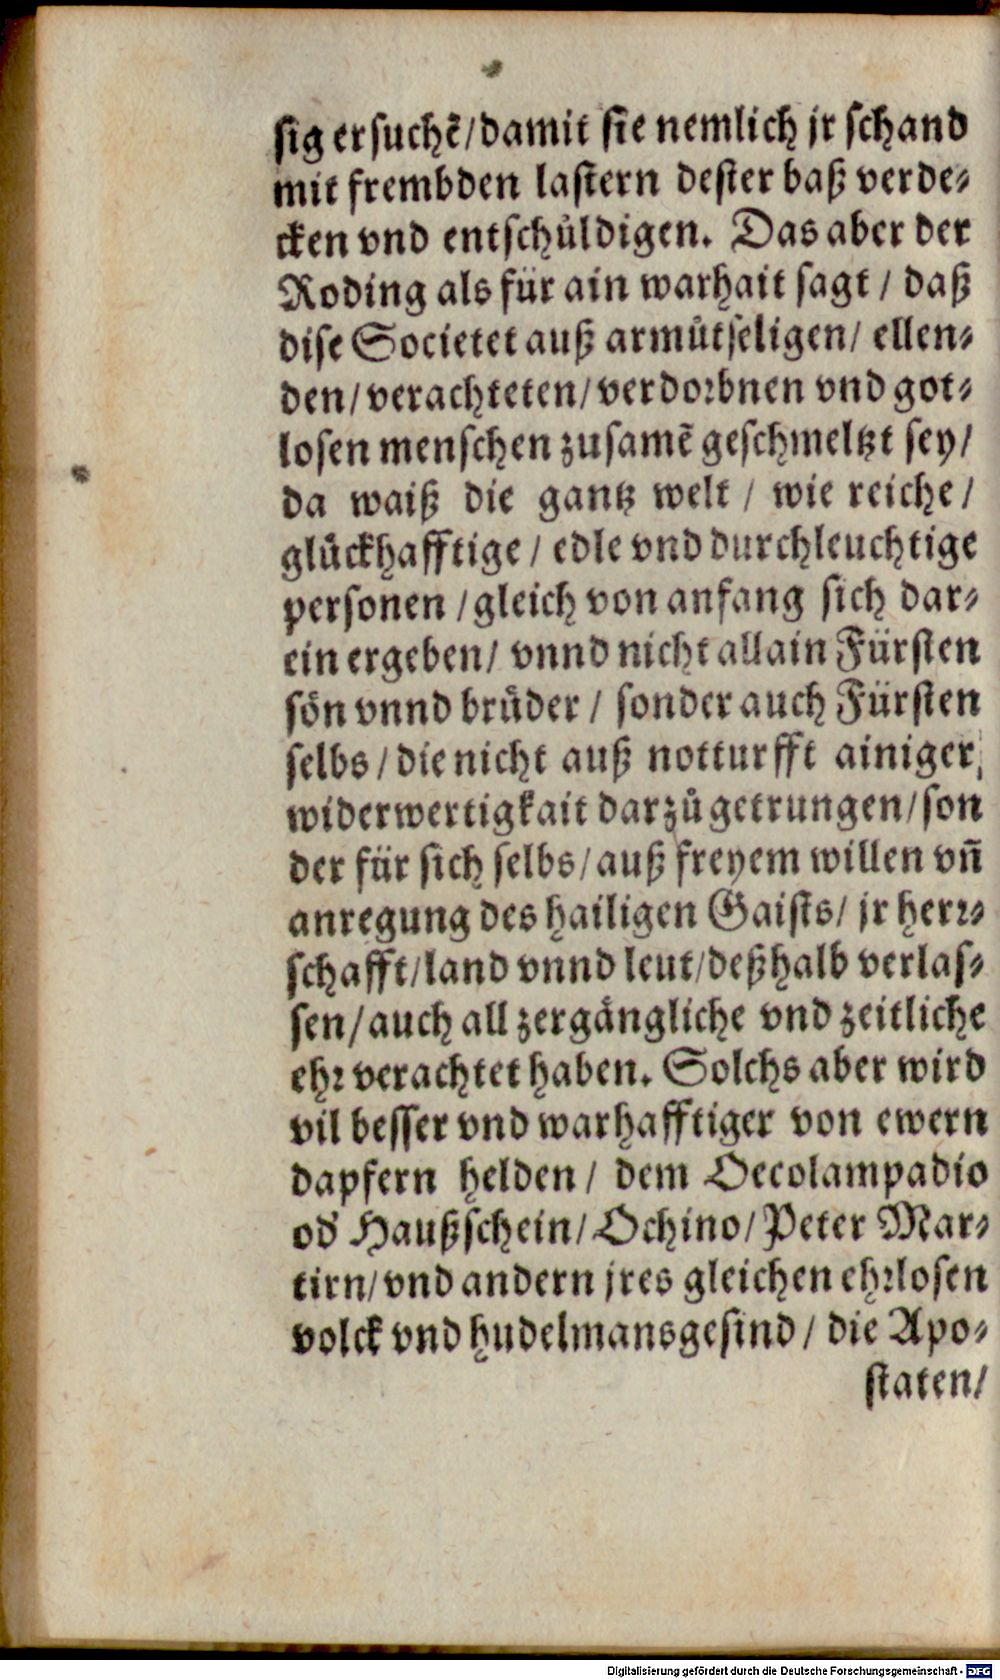 sig ersuchẽ/damit sie nemlich jr schand
mit frembden lastern dester baß verde⸗
cken vnd entschůldigen. Das aber der
Roding als für ain warhait sagt / daß
dise Societet auß armůtseligen/ ellen⸗
den/verachteten/verdorbnen vnd got⸗
losen menschen zusamẽ geschmeltzt sey/
da waiß die gantz welt / wie reiche/
glückhafftige/ edle vnd durchleuchtige
personen /gleich von anfang sich dar⸗
ein ergeben/ vnnd nicht allain Fürsten
sön vnnd brůder / sonder auch Fürsten
selbs/die nicht auß notturfft ainiger
widerwertigkait darzů getrungen/son
der für sich selbs/auß freyem willen vñ
anregung des hailigen Gaists/ jr herr⸗
schafft/land vnnd leut/deßhalb verlas⸗
sen/auch all zergängliche vnd zeitliche
ehr verachtet haben. Solchs aber wird
vil besser vnd warhafftiger von ewern
dapfern helden/ dem Oecolampadio
od' Haußschein/Ochino/Peter Mar⸗
tirn/vnd andern jres gleichen ehrlosen
volck vnd hudelmansgesind/ die Apo⸗
staten/
Digitalisierung gefördert durch die Deutsche Forschungsgemeinschaft - DFG